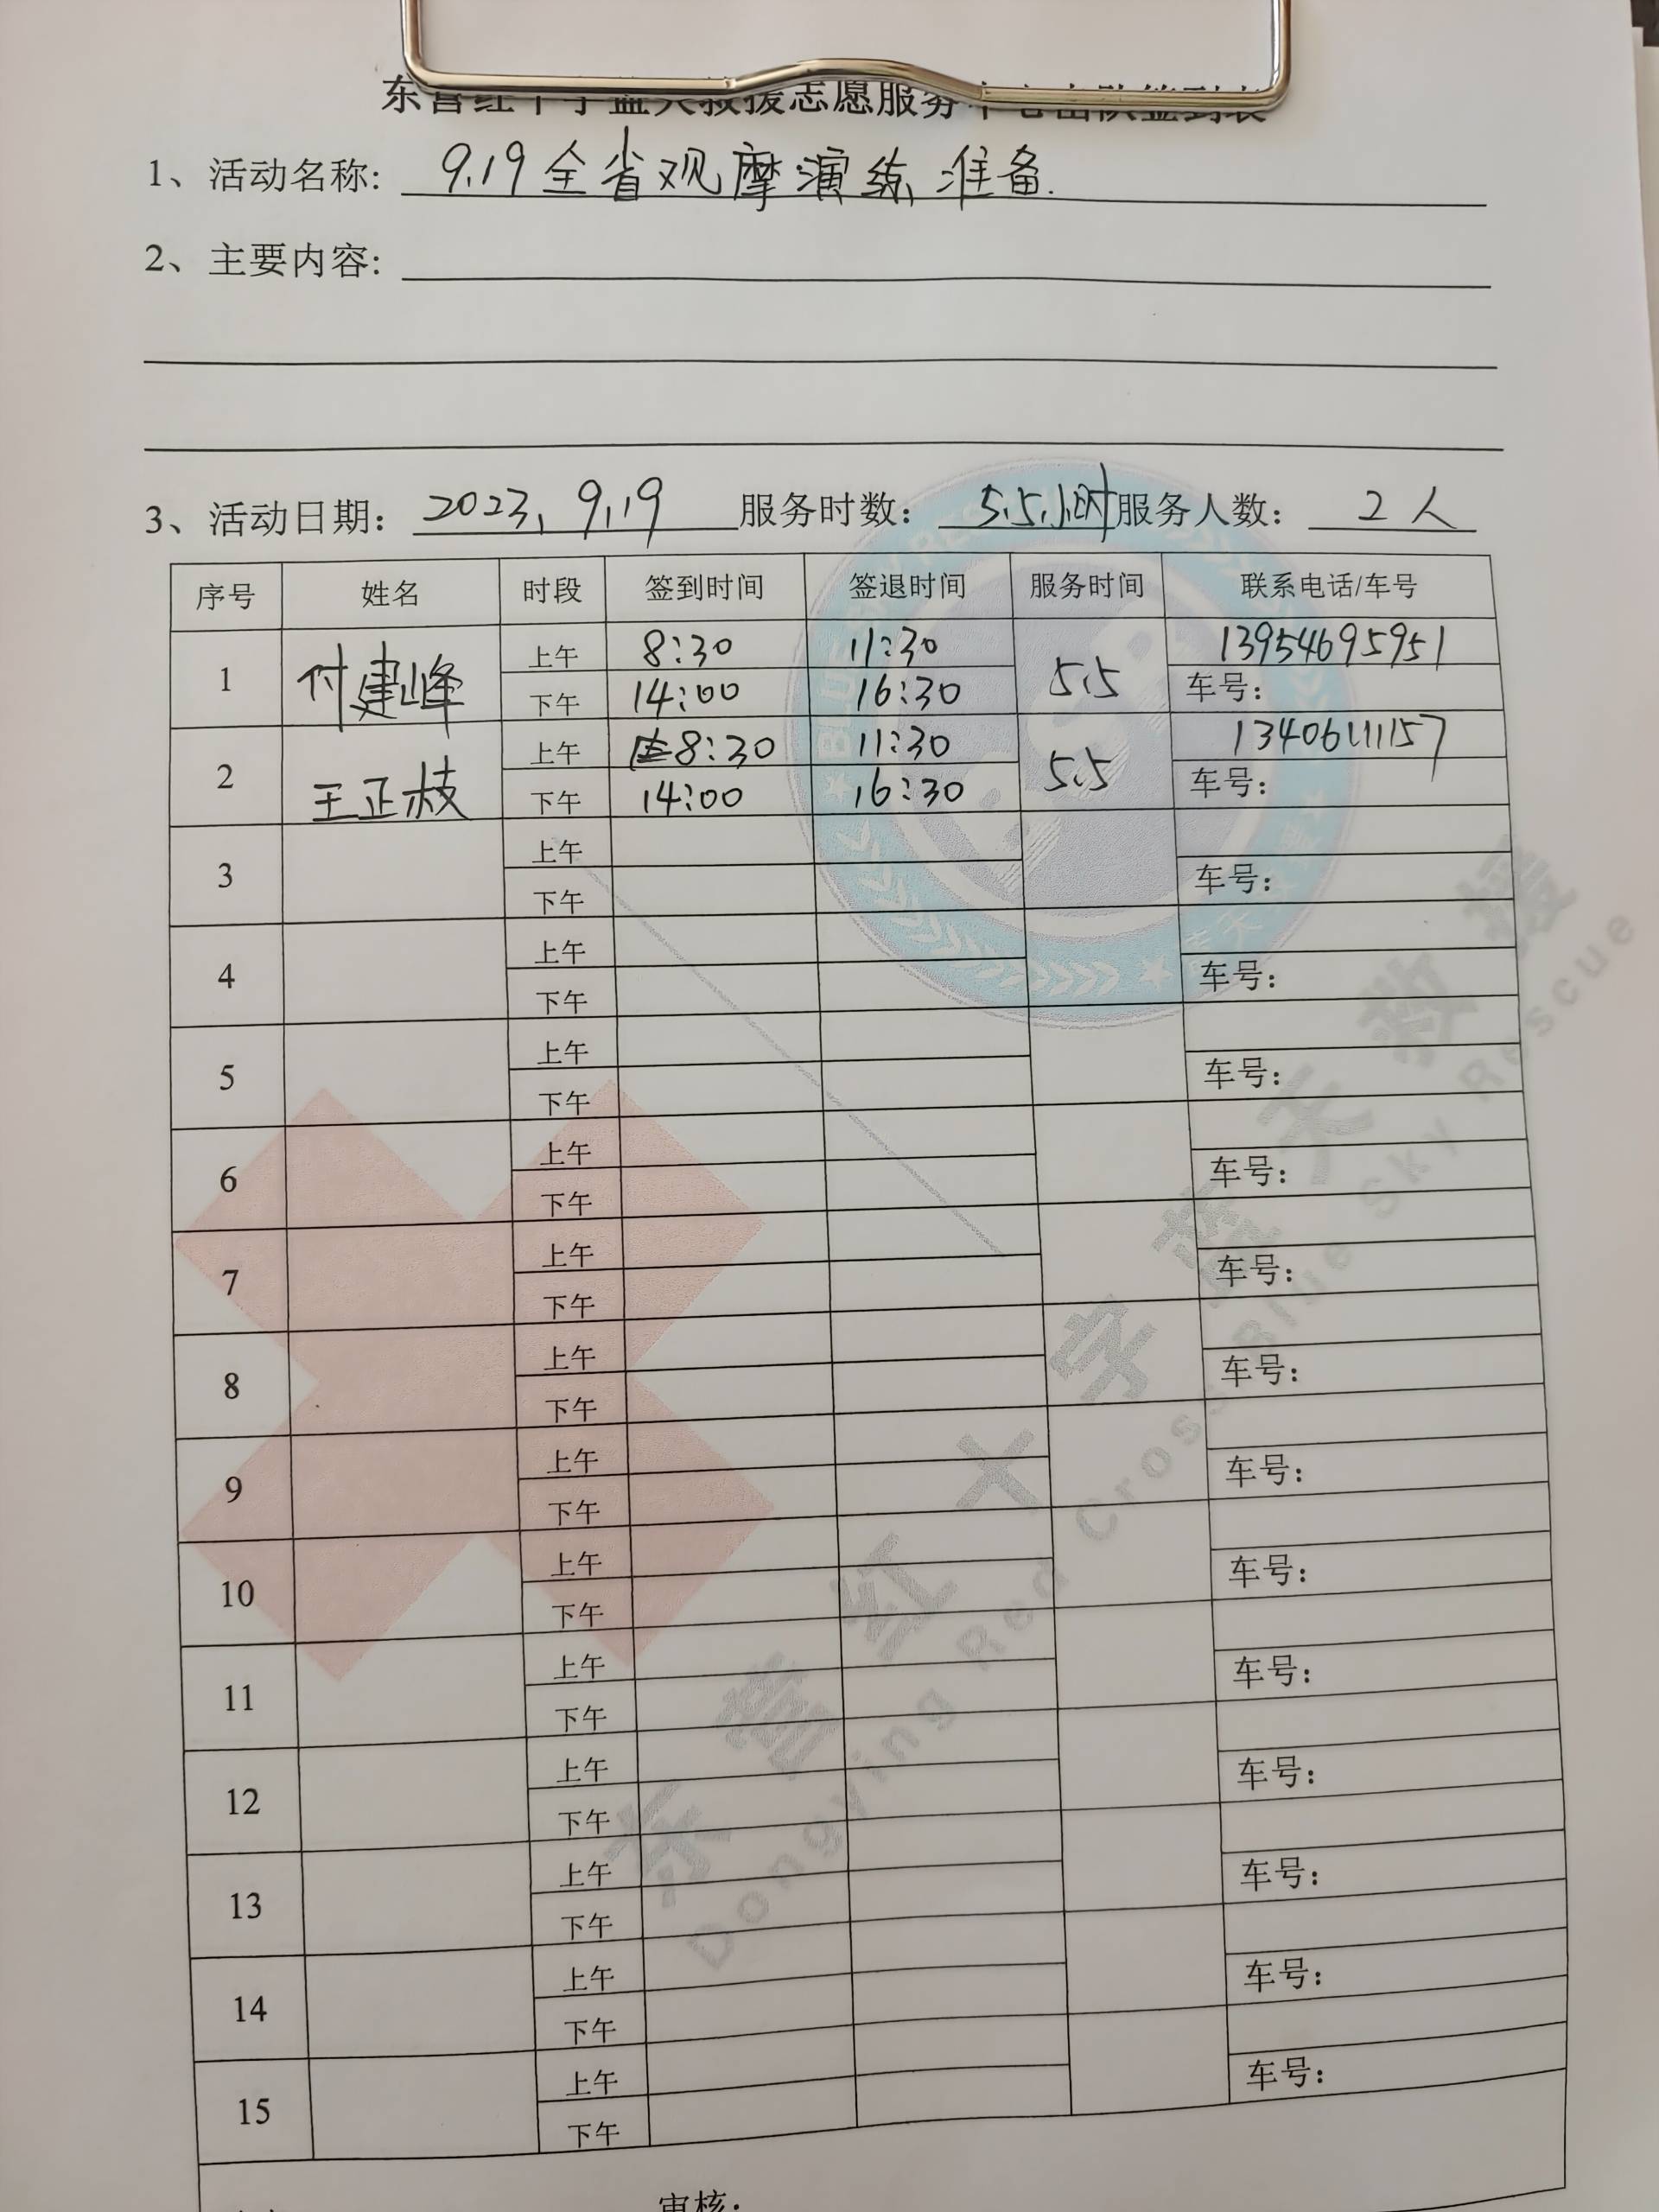 东营红十字蓝天救援志愿服务中心出队签到表
1、活动名称: 9.19全省观摩演练准备.
2、主要内容:
3、活动日期: 2023.9.19 服务时数: 5.5小时 服务人数: 2人
序号 姓名 时段 签到时间 签退时间 服务时间 联系电话/车号
1 付建峰 上午 8:30 11:30 5.5 13954695951
下午 14:00 16:30 车号:
2 王正枝 上午 8:30 11:30 5.5 13406111157
下午 14:00 16:30 车号:
3 上午
下午 车号:
4 上午
下午 车号:
5 上午
下午 车号:
6 上午
下午 车号:
7 上午
下午 车号:
8 上午
下午 车号:
9 上午
下午 车号:
10 上午
下午 车号:
11 上午
下午 车号:
12 上午
下午 车号:
13 上午
下午 车号:
14 上午
下午 车号:
15 上午
下午 车号:
审核:
东营红十字蓝天救援
Dongying Red Cross Blue Sky Rescue